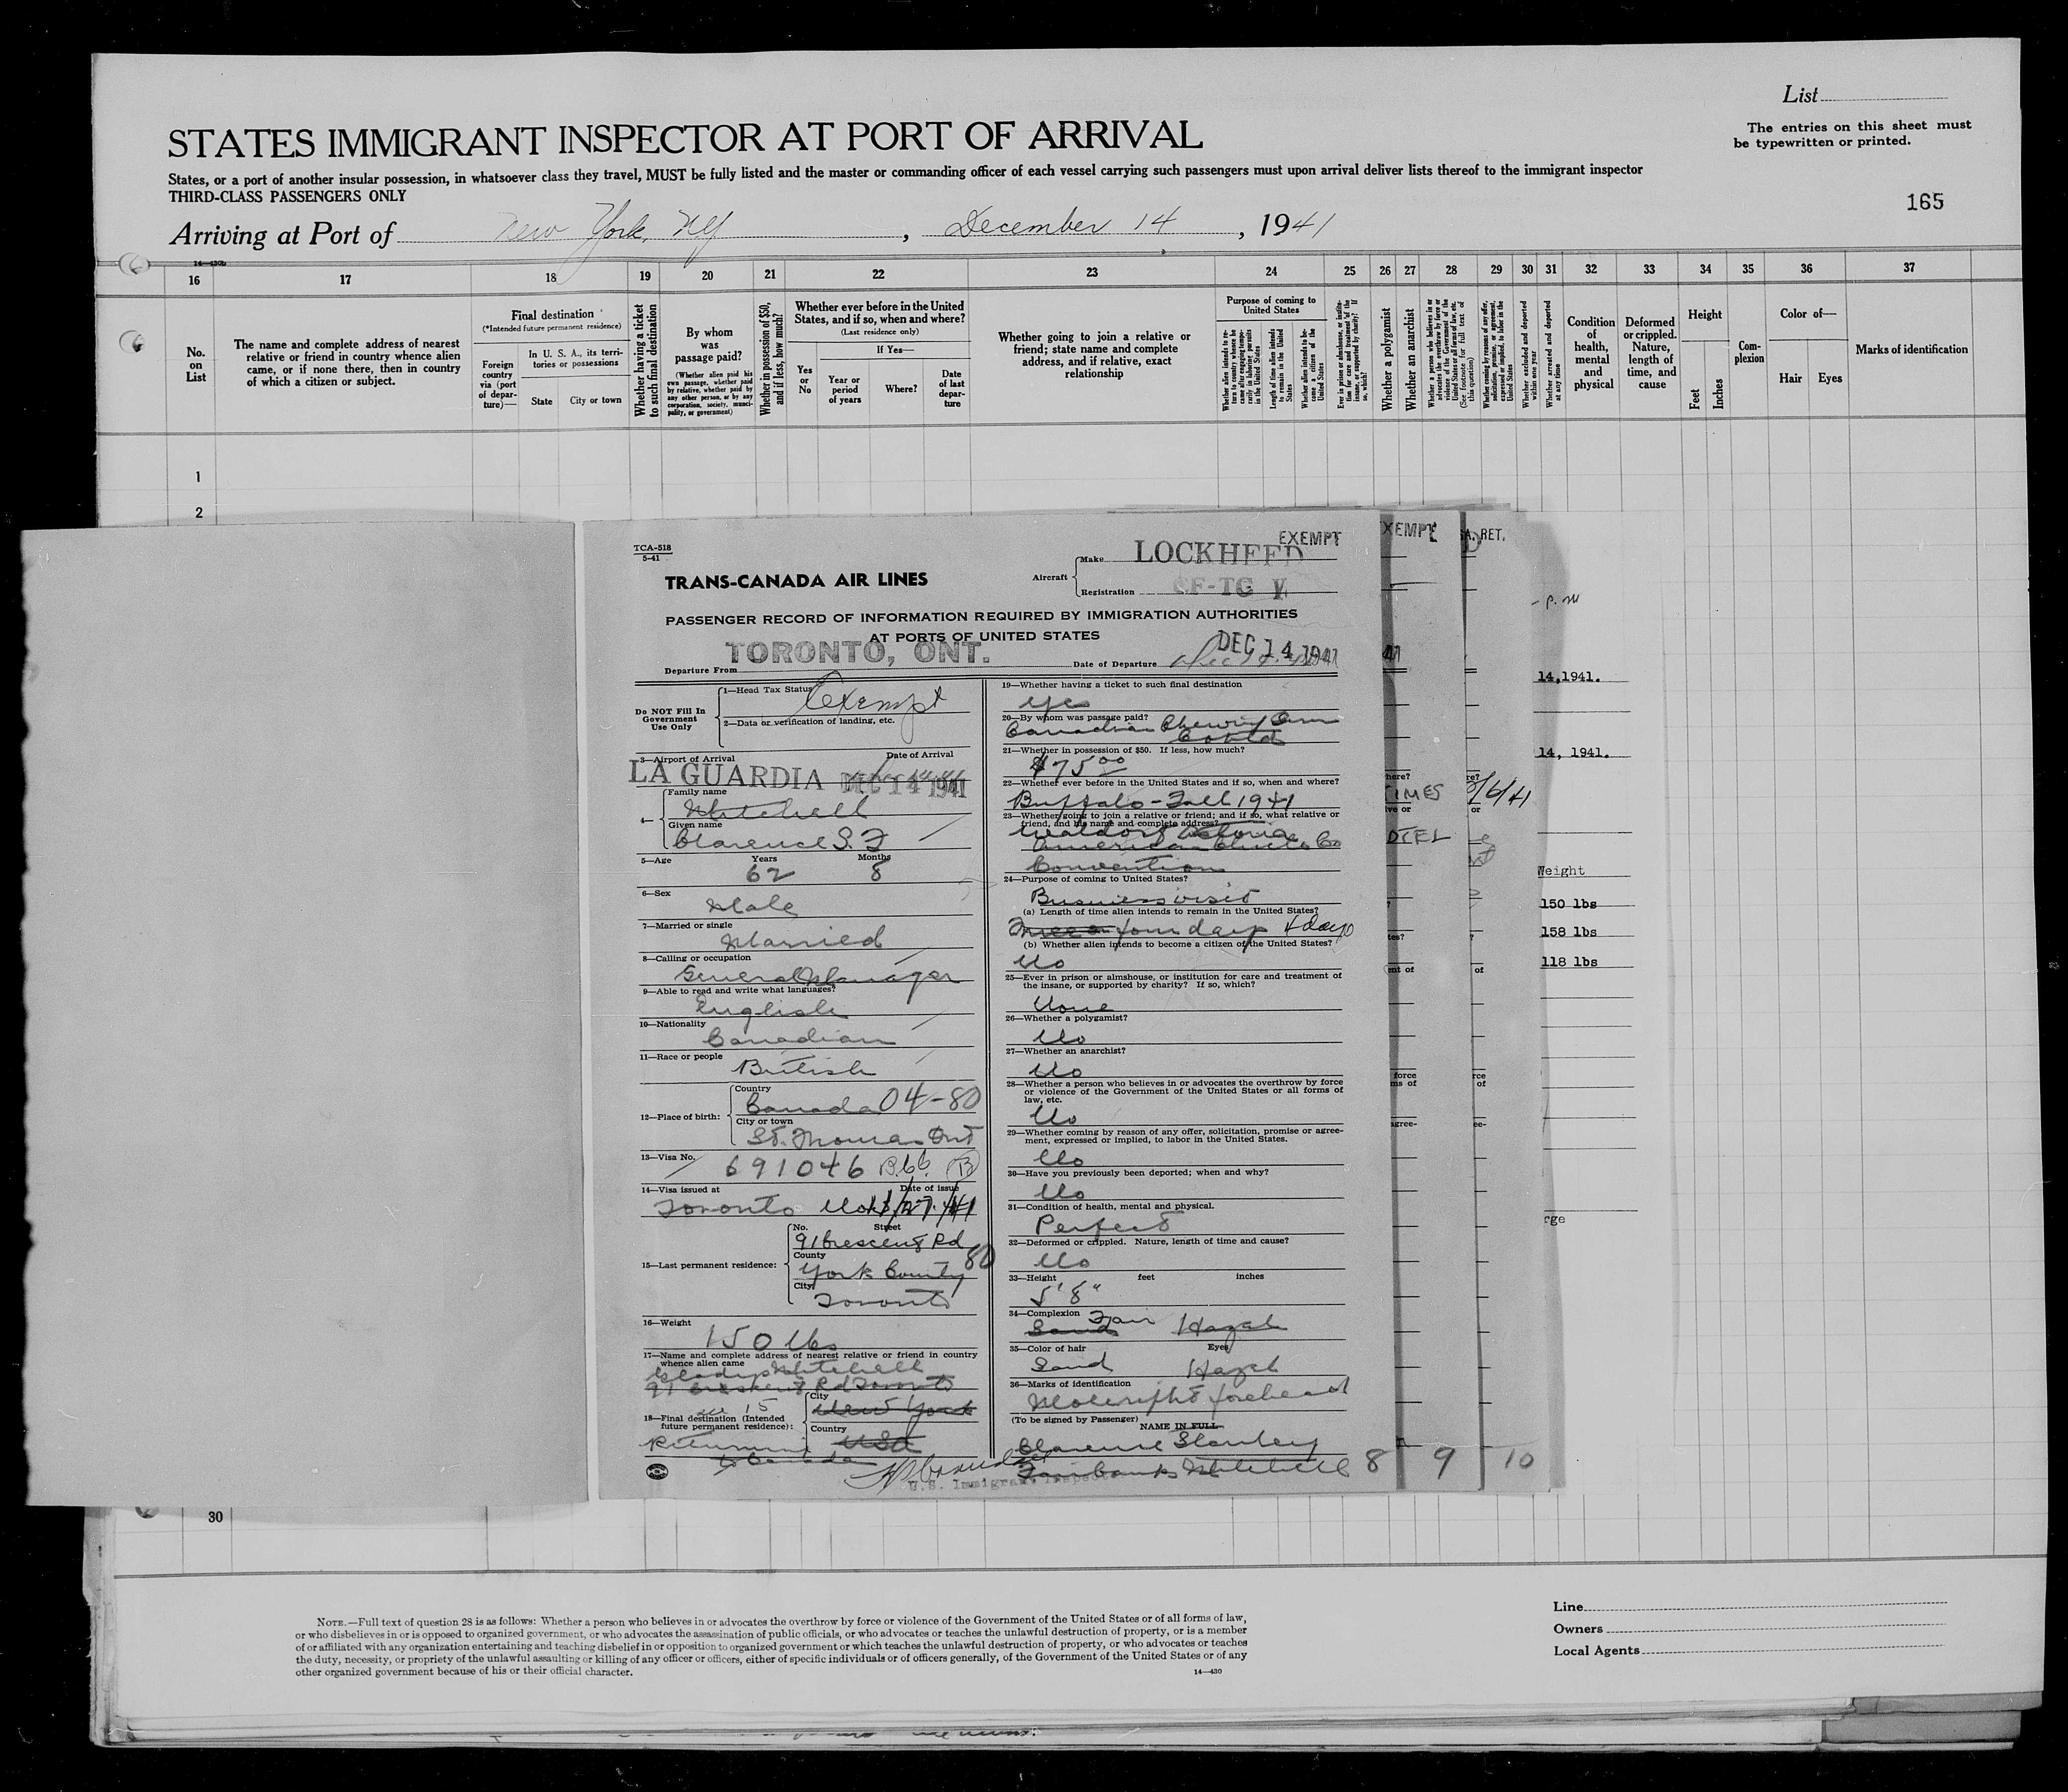 List
The entries on this sheet must
be typewritten or printed.
STATES IMMIGRANT INSPECTOR AT PORT OF ARRIVAL
States, or a port of another insular possession, in whatsoever class they travel, MUST be fully listed and the master or commanding officer of each vessel carrying such passengers must upon arrival deliver lists thereof to the immigrant inspector
THIRD-CLASS PASSENGERS ONLY
165
Arriving at Port of New York, NY, December 14, 1941
14—430b
16 17 18 19 20 21 22 23 24 25 26 27 28 29 30 31 32 33 34 35 36 37
No. on List
The name and complete address of nearest relative or friend in country whence alien came, or if none there, then in country of which a citizen or subject.
Final destination
(*Intended future permanent residence)
Foreign country via (port of departure)—
In U. S. A., its territories or possessions
State City or town
Whether having a ticket to such final destination
By whom was passage paid?
(Whether alien paid his own passage, whether paid by relative, whether paid by any other person, or by any corporation, society, municipality, or government)
Whether in possession of $50, and if less, how much?
Whether ever before in the United States, and if so, when and where?
(Last residence only)
Yes or No
If Yes—
Year or period of years
Where?
Date of last departure
Whether going to join a relative or friend; state name and complete address, and if relative, exact relationship
Purpose of coming to United States
Whether alien intends to return to country whence he came after engaging temporarily in laboring pursuits in the United States
Length of time alien intends to remain in the United States
Whether alien intends to become a citizen of the United States
Ever in prison or almshouse, or institution for care and treatment of the insane, or supported by charity? If so, which?
Whether a polygamist
Whether an anarchist
Whether a person who believes in or advocates the overthrow by force or violence of the Government of the United States or all forms of law, etc. (See footnote for full text of this question)
Whether coming by reason of any offer, solicitation, promise, or agreement, expressed or implied, to labor in the United States
Whether excluded and deported within one year
Whether arrested and deported at any time
Condition of health, mental and physical
Deformed or crippled. Nature, length of time, and cause
Height
Feet Inches
Complexion
Color of—
Hair Eyes
Marks of identification
1
2
TCA-518
5-41
TRANS-CANADA AIR LINES
Aircraft
Make LOCKHEED
EXEMPT
Registration CF-TG
PASSENGER RECORD OF INFORMATION REQUIRED BY IMMIGRATION AUTHORITIES
AT PORTS OF UNITED STATES
Departure From TORONTO, ONT.
Date of Departure DEC 14 1941
Do NOT Fill In Government Use Only
1—Head Tax Status Exempt
2—Data or verification of landing, etc.
3—Airport of Arrival Date of Arrival
LA GUARDIA DEC 14 1941
4—
Family name
Mitchell
Given name
Clarence S. F
5—Age Years Months
62 8
6—Sex
Male
7—Married or single
Married
8—Calling or occupation
General Manager
9—Able to read and write what languages?
English
10—Nationality
Canadian
11—Race or people
British
12—Place of birth:
Country
Canada 04-80
City or town
St. Thomas Ont
13—Visa No.
691046 B66 B
14—Visa issued at Date of issue
Toronto
15—Last permanent residence:
No. Street
91 Crescent Rd
County
York County 80
City
Toronto
16—Weight
150 lbs
17—Name and complete address of nearest relative or friend in country whence alien came
Gladys Mitchell
91 Crescent Rd Toronto
18—Final destination (Intended future permanent residence):
City
New York
Country
USA
Returning
to Canada
19—Whether having a ticket to such final destination
Yes
20—By whom was passage paid?
Canadian Chewing Gum
Co Ltd
21—Whether in possession of $50. If less, how much?
$75.00
22—Whether ever before in the United States and if so, when and where?
Buffalo - Fall 1941
23—Whether going to join a relative or friend; and if so, what relative or friend, and his name and complete address?
Waldorf Astoria
American Chicle Co
Convention
24—Purpose of coming to United States?
Business visit
(a) Length of time alien intends to remain in the United States?
Three or four days 4 days
(b) Whether alien intends to become a citizen of the United States?
No
25—Ever in prison or almshouse, or institution for care and treatment of the insane, or supported by charity? If so, which?
None
26—Whether a polygamist?
No
27—Whether an anarchist?
No
28—Whether a person who believes in or advocates the overthrow by force or violence of the Government of the United States or all forms of law, etc.
No
29—Whether coming by reason of any offer, solicitation, promise or agreement, expressed or implied, to labor in the United States.
No
30—Have you previously been deported; when and why?
No
31—Condition of health, mental and physical.
Perfect
32—Deformed or crippled. Nature, length of time and cause?
No
33—Height feet inches
5' 8"
34—Complexion Fair
Sand Hazel
35—Color of hair Eyes
Sand Hazel
36—Marks of identification
Mole right forehead
(To be signed by Passenger)
NAME IN FULL
Clarence Stanley
Fairbanks Mitchell
U.S. Immigrant Inspector
8 9 10
EXEMPT
RET.
P. M
14,1941.
14, 1941.
here?
TIMES
/6/41
OTEL
Weight
150 lbs
158 lbs
118 lbs
force
ms of
agree-
rge
30
NOTE.—Full text of question 28 is as follows: Whether a person who believes in or advocates the overthrow by force or violence of the Government of the United States or of all forms of law,
or who disbelieves in or is opposed to organized government, or who advocates the assassination of public officials, or who advocates or teaches the unlawful destruction of property, or is a member
of or affiliated with any organization entertaining and teaching disbelief in or opposition to organized government or which teaches the unlawful destruction of property, or who advocates or teaches
the duty, necessity, or propriety of the unlawful assaulting or killing of any officer or officers, either of specific individuals or of officers generally, of the Government of the United States or of any
other organized government because of his or their official character.
14—430
Line
Owners
Local Agents